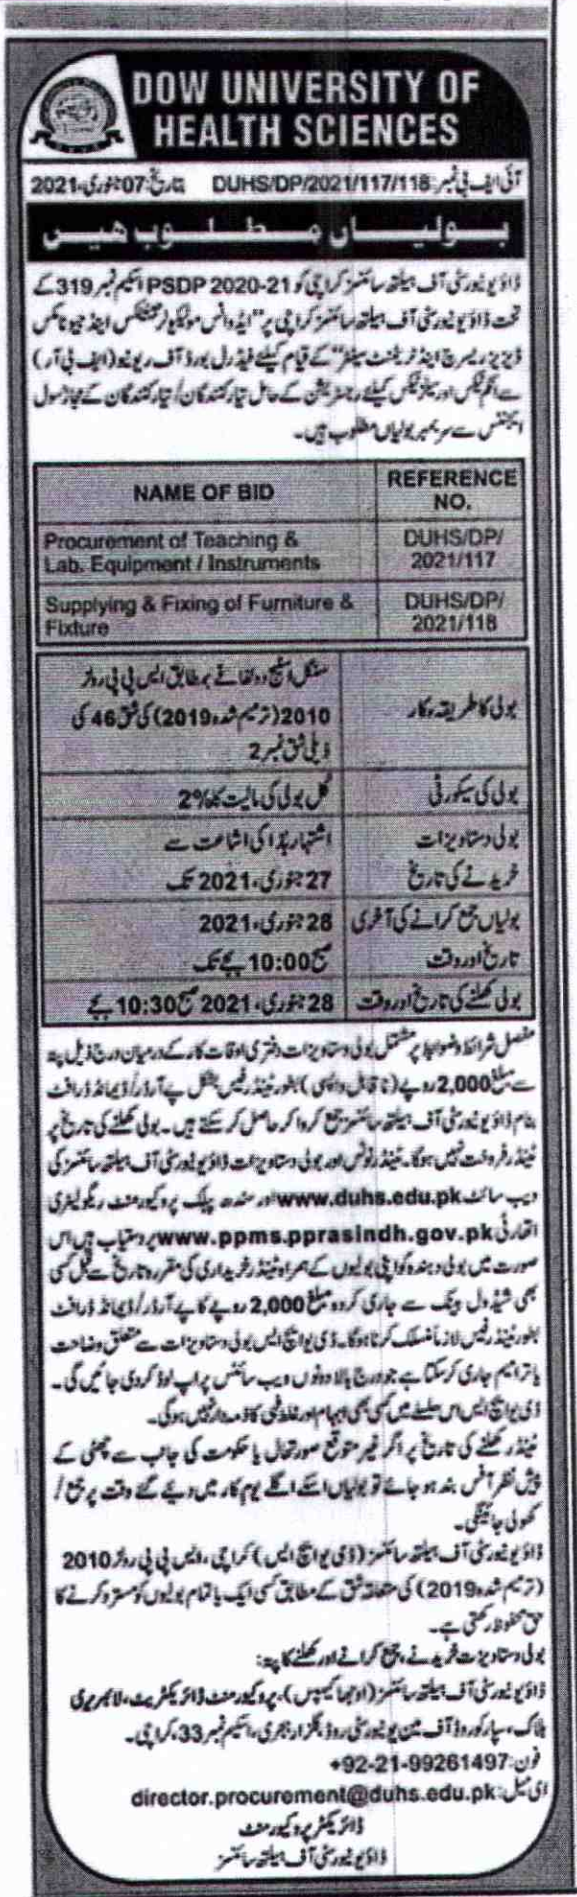 DOW UNIVERSITY OF
HEALTH SCIENCES
آئی ایف بی نمبر: DUHS/DP/2021/117/118 بتاریخ: 07 جنوری، 2021
بولیاں مطلوب ہیں
ڈاؤ یونیورسٹی آف ہیلتھ سائنسز کراچی کو PSDP 2020-21 اسکیم نمبر 319 کے
تحت ڈاؤ یونیورسٹی آف ہیلتھ سائنسز کراچی پر "ایڈوانس مولیکیولر جینیٹکس اینڈ جینومکس
ڈیزیز ریسرچ اینڈ ٹریٹمنٹ سینٹر" کے قیام کیلئے فیڈرل بورڈ آف ریونیو (ایف بی آر)
سے انکم ٹیکس اور سیلز ٹیکس کیلئے رجسٹریشن کے حامل تیار کنندگان/ تیار کنندگان کے مجاز سول
ایجنٹس سے سر بمہر بولیاں مطلوب ہیں۔
NAME OF BID REFERENCE NO.
Procurement of Teaching & DUHS/DP/
Lab. Equipment / Instruments 2021/117
Supplying & Fixing of Furniture & DUHS/DP/
Fixture 2021/118
بولی کا طریقہ کار سنگل اسٹیج دو لفافے بمطابق ایس پی پی رولز
2010 (ترمیم شدہ 2019) کی شق 46 کی
ذیلی شق نمبر 2
بولی کی سیکورٹی کُل بولی کی مالیت کا 2%
بولی دستاویزات اشتہار ہٰذا کی اشاعت سے
خریدنے کی تاریخ 27 جنوری، 2021 تک
بولیاں جمع کرانے کی آخری 28 جنوری، 2021
تاریخ اور وقت صبح 10:00 بجے تک
بولی کھلنے کی تاریخ اور وقت 28 جنوری، 2021 صبح 10:30 بجے
مفصل شرائط و ضوابط پر مشتمل بولی دستاویزات دفتری اوقات کار کے درمیان درج ذیل پتہ
سے مبلغ 2,000 روپے (ناقابل واپسی) بطور ٹینڈر فیس بشکل پے آرڈر/ ڈیمانڈ ڈرافٹ
بنام ڈاؤ یونیورسٹی آف ہیلتھ سائنسز جمع کروا کر حاصل کر سکتے ہیں۔ بولی کھلنے کی تاریخ پر
ٹینڈر فروخت نہیں ہوگا۔ ٹینڈر نوٹس اور بولی دستاویزات ڈاؤ یونیورسٹی آف ہیلتھ سائنسز کی
ویب سائٹ www.duhs.edu.pk اور سندھ پبلک پروکیورمنٹ ریگولیٹری
اتھارٹی www.ppms.pprasindh.gov.pk پر دستیاب ہیں اس
صورت میں بولی دہندہ کو اپنی بولیوں کے ہمراہ ٹینڈر خریداری کی مقررہ تاریخ سے قبل کسی
بھی شیڈول بینک سے جاری کردہ مبلغ 2,000 روپے کا پے آرڈر/ ڈیمانڈ ڈرافٹ
بطور ٹینڈر فیس لازماً منسلک کرنا ہوگا۔ ڈی یو ایچ ایس بولی دستاویزات سے متعلق وضاحت
یا ترامیم جاری کر سکتا ہے جو درج بالا دونوں ویب سائٹس پر اپ لوڈ کردی جائیں گی۔
ڈی یو ایچ ایس اس سلسلے میں کسی بھی ابہام اور غلط فہمی کا ذمہ دار نہیں ہوگی۔
ٹینڈر کھلنے کی تاریخ پر اگر غیر متوقع صورتحال یا حکومت کی جانب سے چھٹی کے
پیش نظر آفس بند ہو جائے تو بولیاں اسکے اگلے یوم کار میں دیے گئے وقت پر جمع /
کھولی جائینگی۔
ڈاؤ یونیورسٹی آف ہیلتھ سائنسز (ڈی یو ایچ ایس) کراچی، ایس پی پی رولز 2010
(ترمیم شدہ 2019) کی متعلقہ شق کے مطابق کسی ایک یا تمام بولیوں کو مسترد کرنے کا
حق محفوظ رکھتی ہے۔
بولی دستاویزات خریدنے، جمع کرانے اور کھلنے کا پتہ:
ڈاؤ یونیورسٹی آف ہیلتھ سائنسز (اوجھا کیمپس)، پروکیورمنٹ ڈائریکٹریٹ، لائبریری
بلاک، سپارکو روڈ آف مین یونیورسٹی روڈ، گلزار ہجری، اسکیم نمبر 33، کراچی۔
فون: +92-21-99261497
ای میل: director.procurement@duhs.edu.pk
ڈائریکٹر پروکیورمنٹ
ڈاؤ یونیورسٹی آف ہیلتھ سائنسز